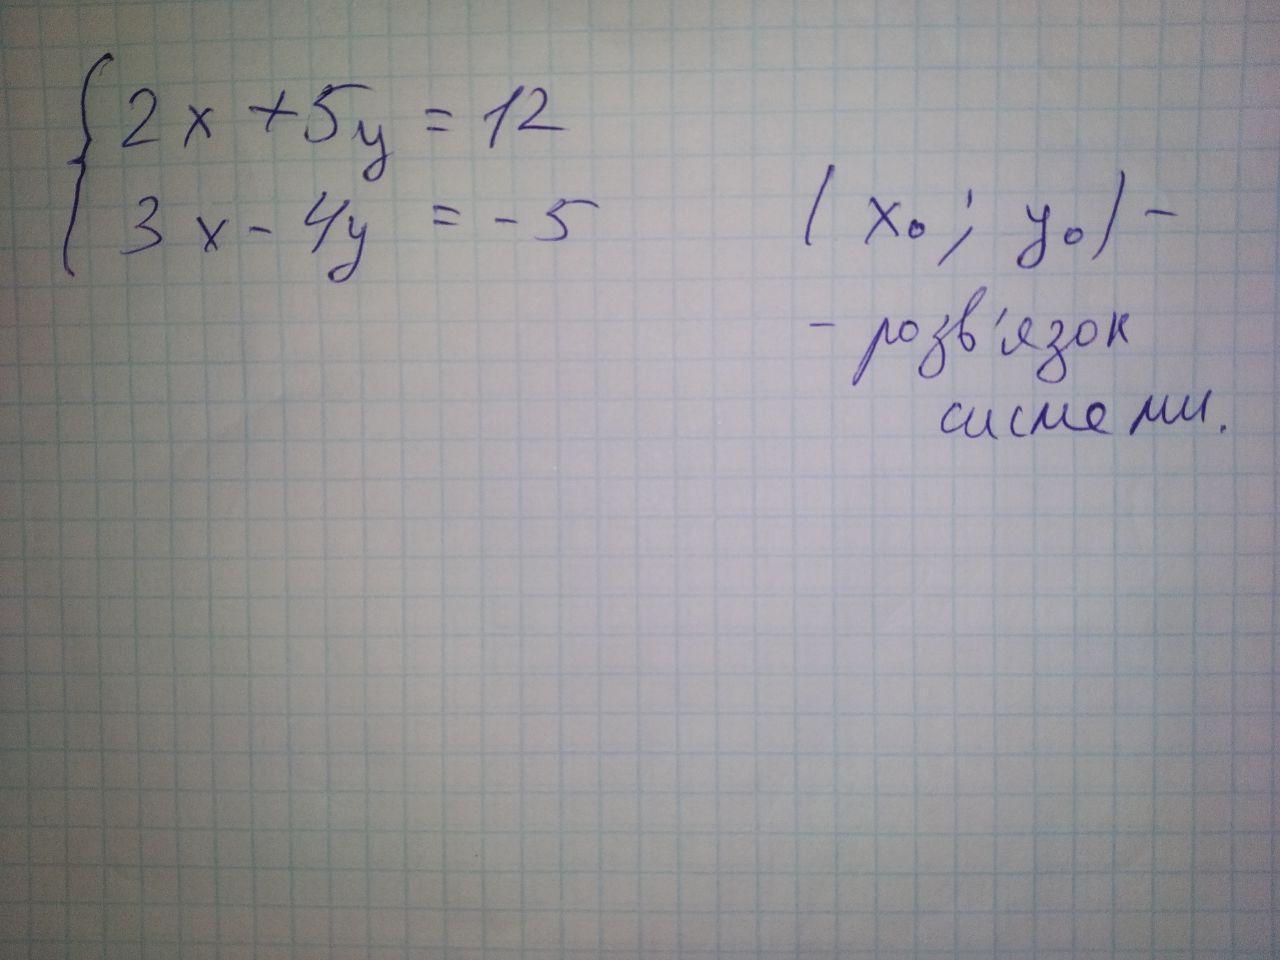 2x + 5y = 12
3x - 4y = -5
(x₀; y₀) -
- розв'язок
системи.